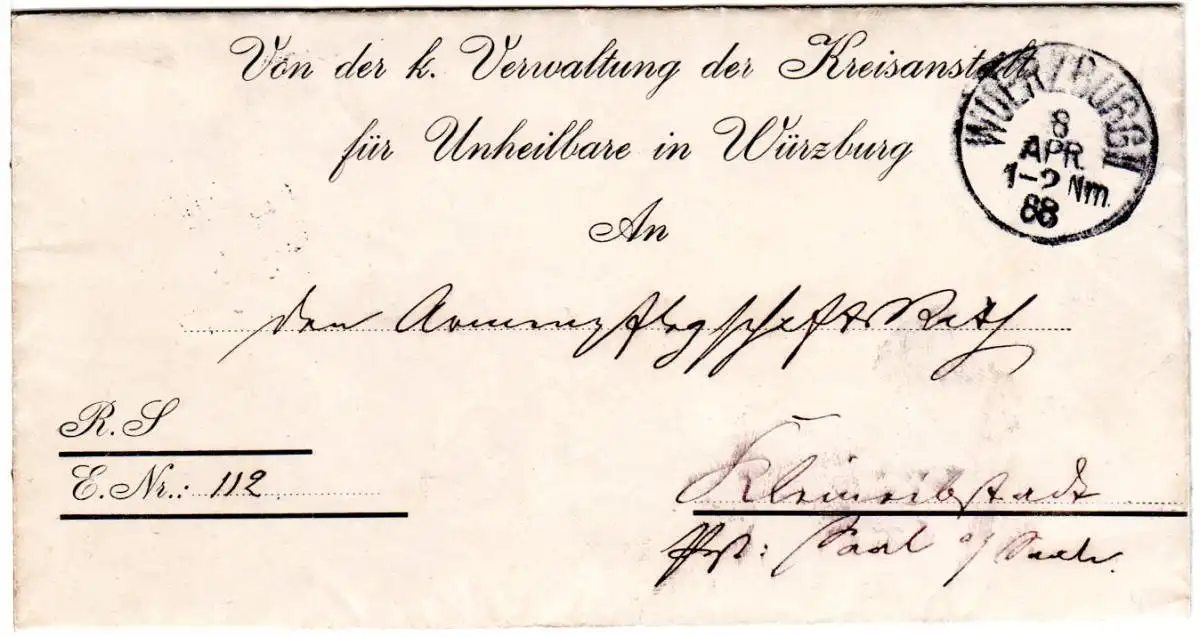 Von der k. Verwaltung der Kreisanstalt
für Unheilbare in Würzburg
WUERZBURG II
8
APR.
1-2 Nm.
88
An
den Armenpflegschaftsrath
R. S
E. Nr.: 112
Kleineibstadt
Post: Saal a/ Saale.